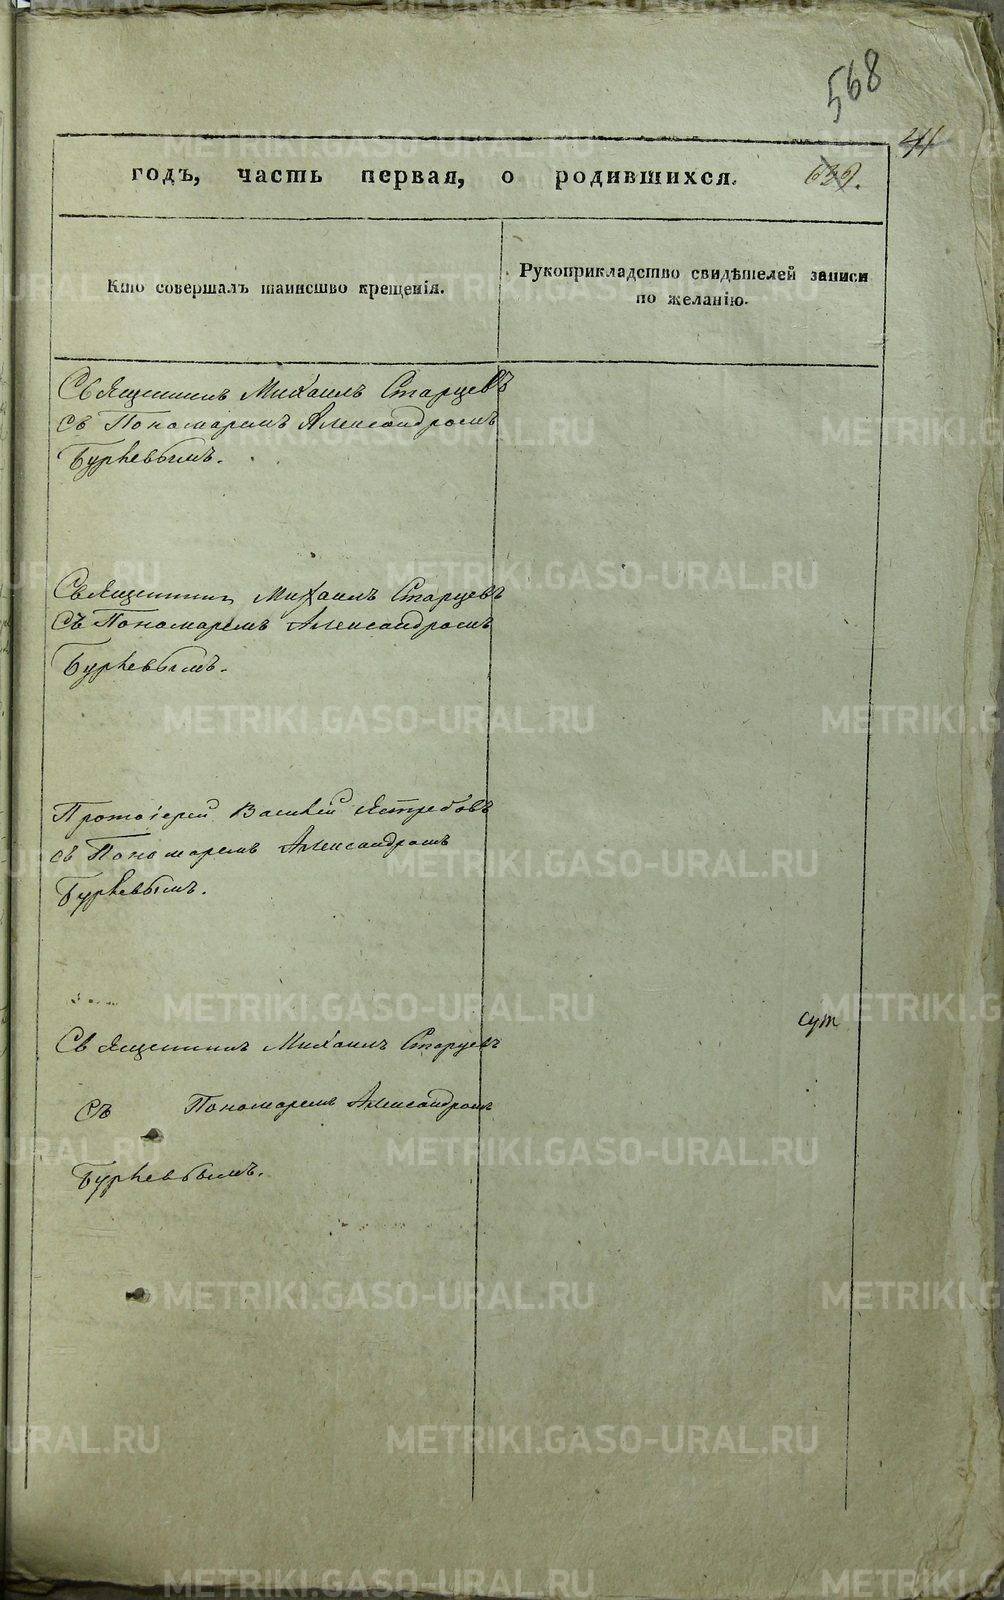 568
41
годъ, часть первая, о родившихся. 639.
Кто совершалъ таинство крещенія.
Рукоприкладство свидѣтелей записи
по желанію.
Священникъ Михаилъ Старцевъ
съ Пономаремъ Александромъ
Бурчевымъ.
Священникъ Михаилъ Старцевъ
съ Пономаремъ Александромъ
Бурчевымъ.
Протоіерей Василій Ястребовъ
съ Пономаремъ Александромъ
Бурчевымъ.
Священникъ Михаилъ Старцевъ
съ Пономаремъ Александромъ
Бурчевымъ.
METRIKI.GASO-URAL.RU